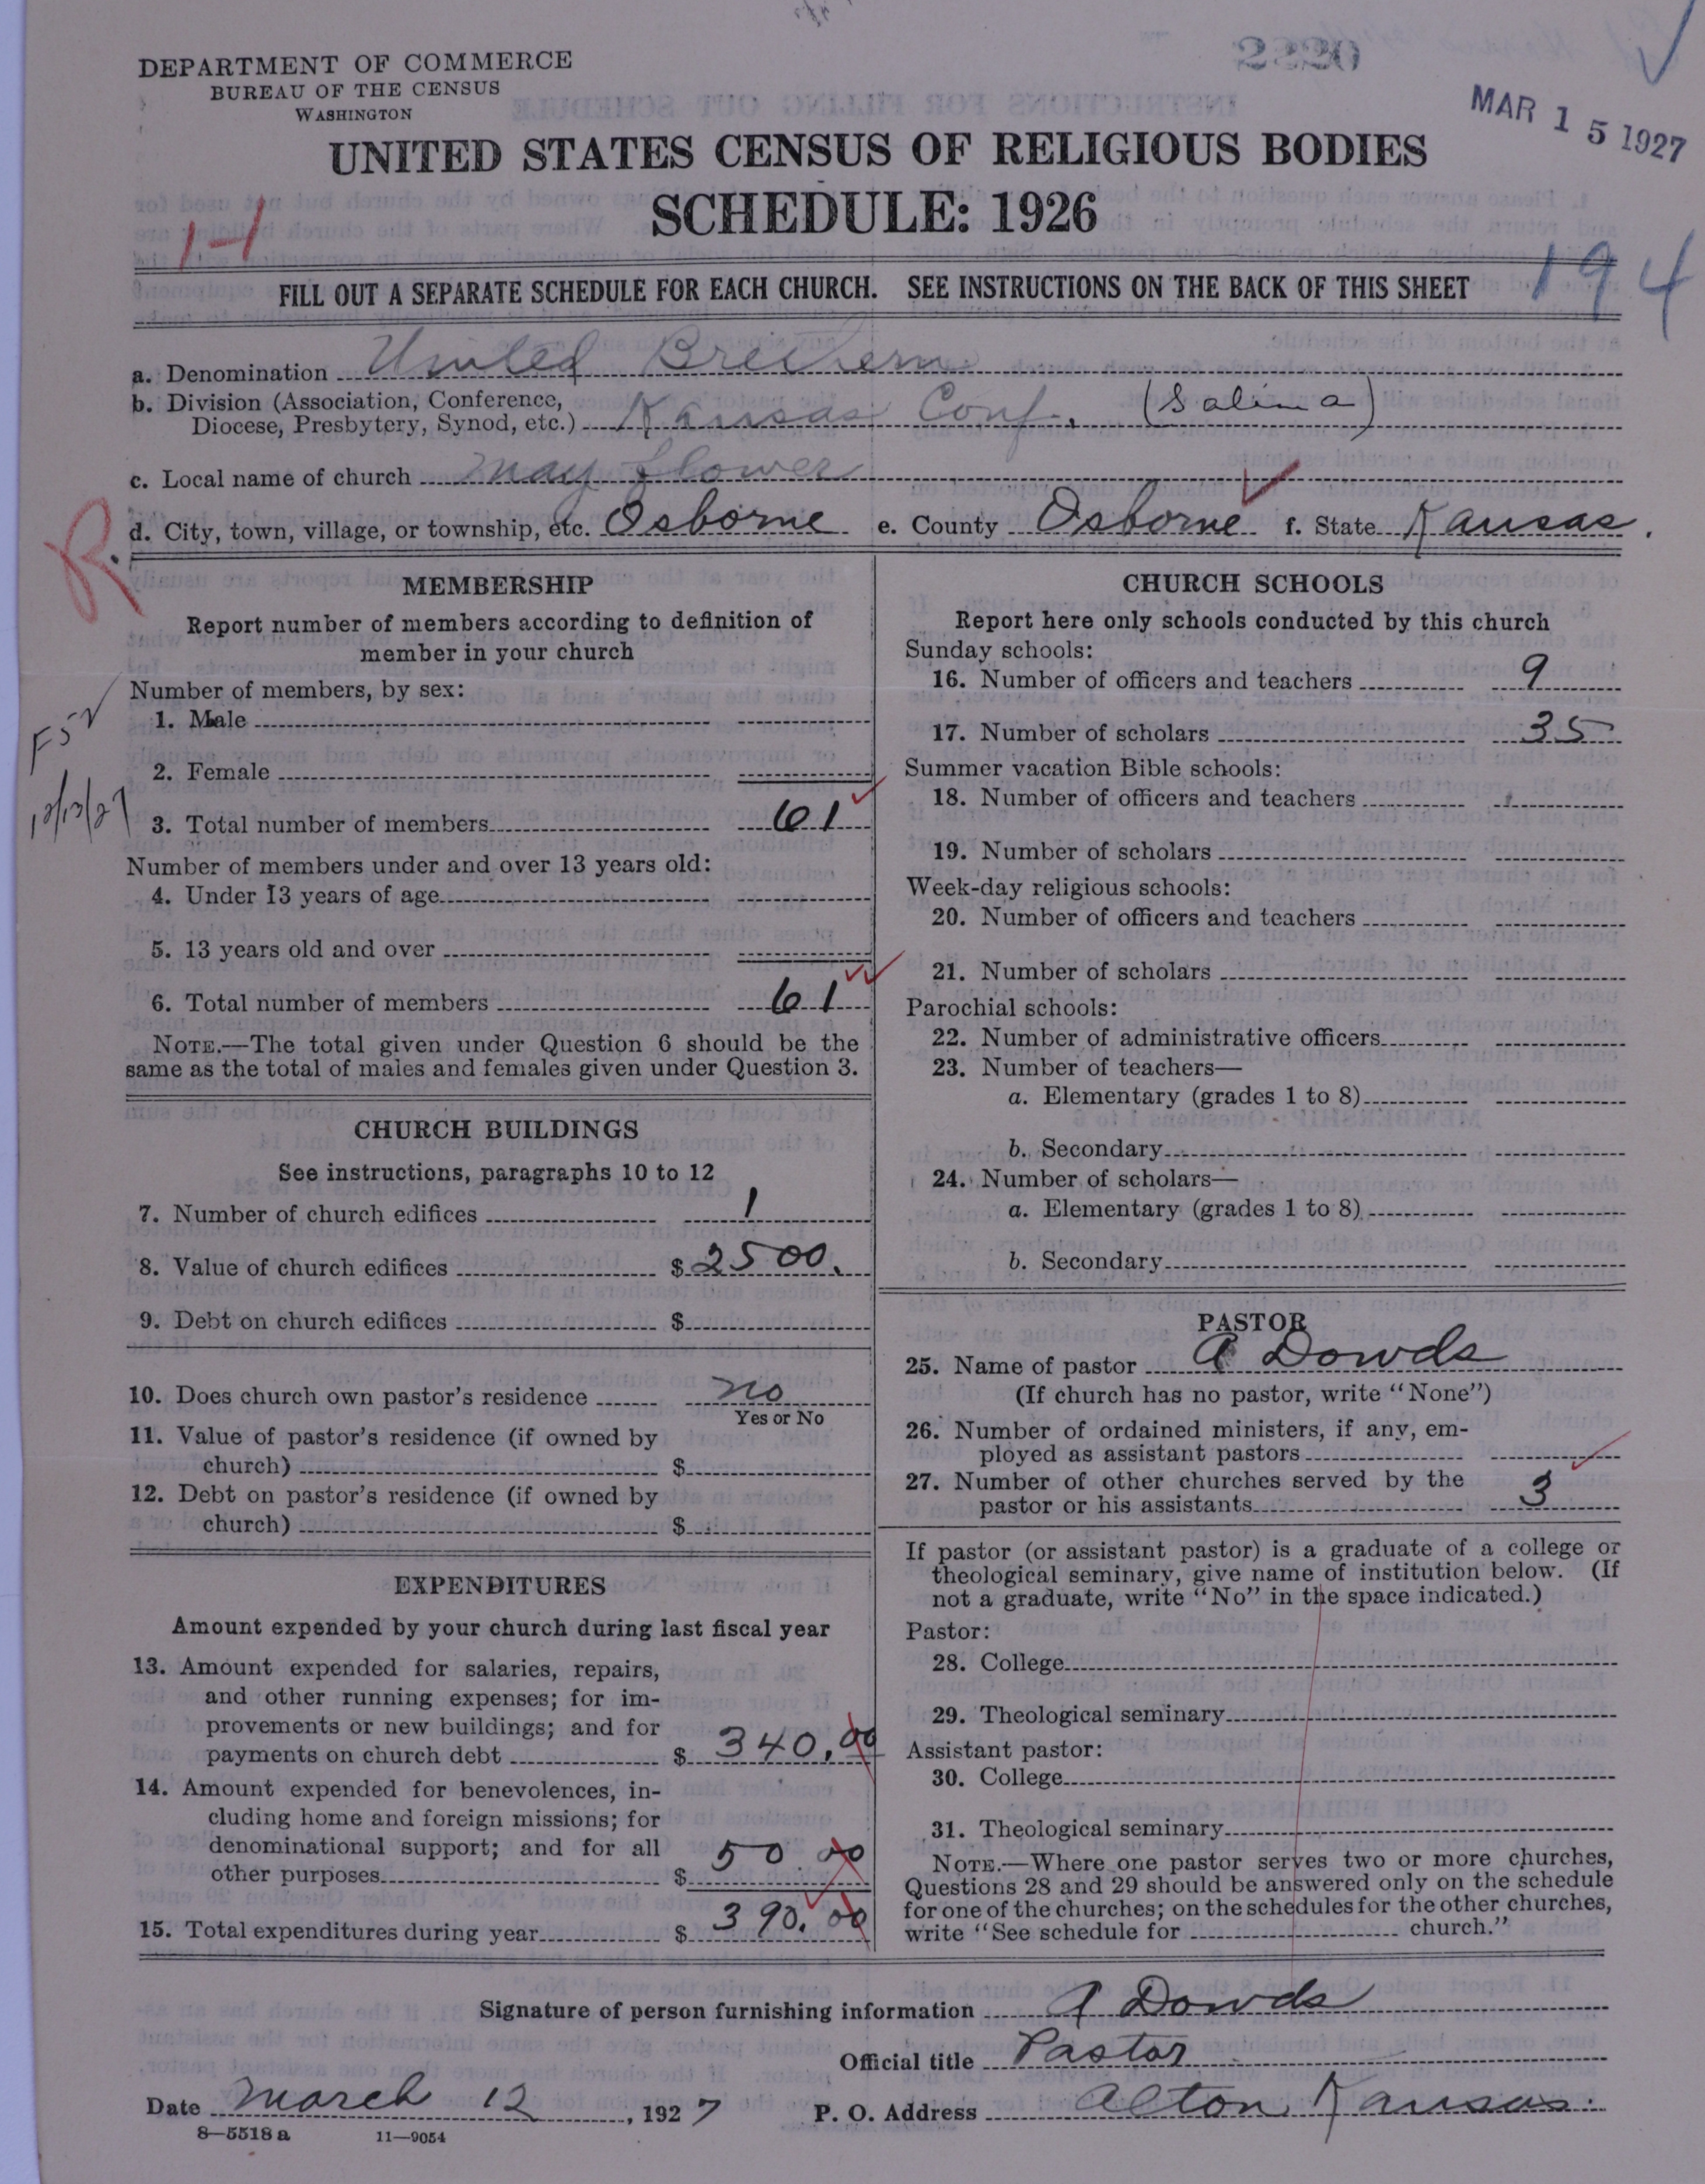 DEPARTMENT OF COMMERCE
BUREAU OF THE CENSUS
WASHINGTON
2220
MAR 15 1927
UNITED STATES CENSUS OF RELIGIOUS BODIES
SCHEDULE: 1926
1-1
194
FILL OUT A SEPARATE SCHEDULE FOR EACH CHURCH. SEE INSTRUCTIONS ON THE BACK OF THIS SHEET
a. Denomination United Brethern
b. Division (Association, Conference,
Diocese, Presbytery, Synod, etc.) Kansas Conf. (Salina)
c. Local name of church May flower
R.
d. City, town, village, or township, etc. Osborne e. County Osborne f. State Kansas.
MEMBERSHIP
Report number of members according to definition of
member in your church
Number of members, by sex:
1. Male
2. Female
3. Total number of members 61
Number of members under and over 13 years old:
4. Under 13 years of age
5. 13 years old and over
6. Total number of members 61
NOTE.—The total given under Question 6 should be the
same as the total of males and females given under Question 3.
CHURCH BUILDINGS
See instructions, paragraphs 10 to 12
7. Number of church edifices 1
8. Value of church edifices $ 2500.
9. Debt on church edifices $
10. Does church own pastor's residence no
Yes or No
11. Value of pastor's residence (if owned by
church) $
12. Debt on pastor's residence (if owned by
church) $
EXPENDITURES
Amount expended by your church during last fiscal year
13. Amount expended for salaries, repairs,
and other running expenses; for im-
provements or new buildings; and for
payments on church debt $ 340.00
14. Amount expended for benevolences, in-
cluding home and foreign missions; for
denominational support; and for all
other purposes $ 50.00
15. Total expenditures during year $ 390.00
CHURCH SCHOOLS
Report here only schools conducted by this church
Sunday schools:
16. Number of officers and teachers 9
17. Number of scholars 35
Summer vacation Bible schools:
18. Number of officers and teachers
19. Number of scholars
Week-day religious schools:
20. Number of officers and teachers
21. Number of scholars
Parochial schools:
22. Number of administrative officers
23. Number of teachers—
a. Elementary (grades 1 to 8)
b. Secondary
24. Number of scholars—
a. Elementary (grades 1 to 8)
b. Secondary
PASTOR
25. Name of pastor A Dowds
(If church has no pastor, write "None")
26. Number of ordained ministers, if any, em-
ployed as assistant pastors
27. Number of other churches served by the
pastor or his assistants 3
If pastor (or assistant pastor) is a graduate of a college or
theological seminary, give name of institution below. (If
not a graduate, write "No" in the space indicated.)
Pastor:
28. College
29. Theological seminary
Assistant pastor:
30. College
31. Theological seminary
NOTE.—Where one pastor serves two or more churches,
Questions 28 and 29 should be answered only on the schedule
for one of the churches; on the schedules for the other churches,
write "See schedule for church."
Signature of person furnishing information A Dowds
Official title Pastor
Date March 12, 1927 P. O. Address Alton Kansas.
8—5518 a 11—9054